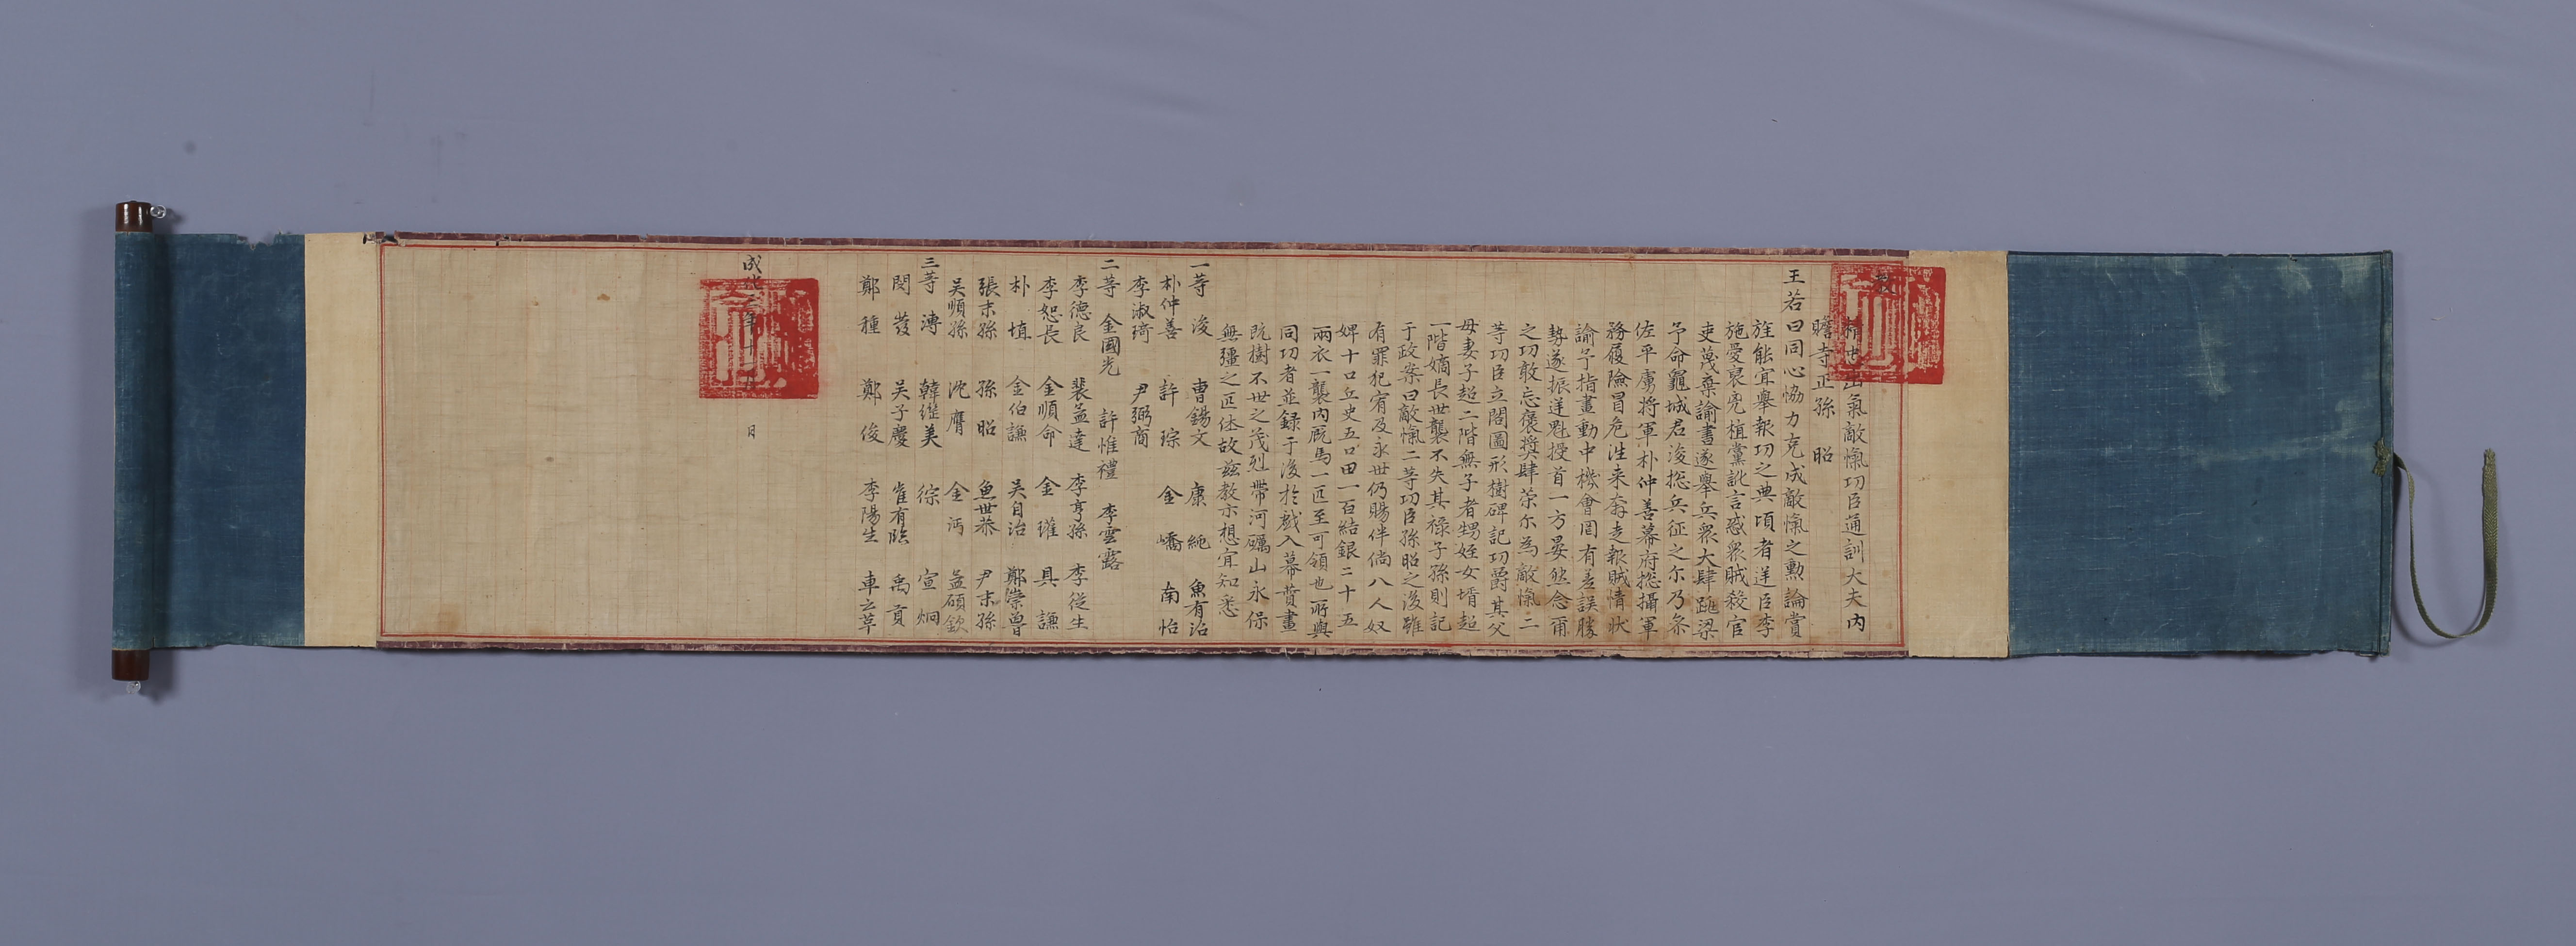 教
精忠出氣敵愾功臣通訓大夫內
贍寺正孫 昭
王若曰同心恊力克成敵愾之勳論賞
旌能宜舉報功之典頃者逆臣李
施愛裒兇植黨訛言惑衆賊殺官
吏蔑棄諭書遂舉兵衆大肆跳梁
予命龜城君浚揔兵征之尔乃叅
佐平虜將軍朴仲善幕府揔攝軍
務履險冒危往来奔走報賊情状
諭予指畫動中機會罔有差誤勝
勢遂振逆魁授首一方晏然念爾
之功敢忘褒奬肆策尓為敵愾二
等功臣立閣圖形樹碑記功爵其父
母妻子超二階無子者甥姪女壻超
一階嫡長世襲不失其禄子孫則記
于政案曰敵愾二等功臣孫昭之後雖
有罪犯宥及永世仍賜伴倘八人奴
婢十口丘史五口田一百結銀二十五
兩衣一襲內厩馬一匹至可領也所與
同功者並録于後於戱入幕贊畫
旣樹不世之茂烈帶河礪山永保
無疆之匹休故玆教示想宜知悉
一等 浚 曺錫文 康純 魚有沼
朴仲善 許琮 金嶠 南怡
李淑琦 尹弼商
二等 金國光 許惟禮 李雲露
李德良 裴孟達 李亨孫 李従生
李恕長 金順命 金瓘 具謙
朴埴 金伯謙 吴自治 鄭崇魯
張末孫 孫昭 魚世恭 尹末孫
吴順孫 沈膺 金沔 孟碩欽
三等 溥 韓継美 徖 宣炯
閔發 吴子慶 崔有臨 禹貢
鄭種 鄭俊 李陽生 車云革
成化三年十一月 日